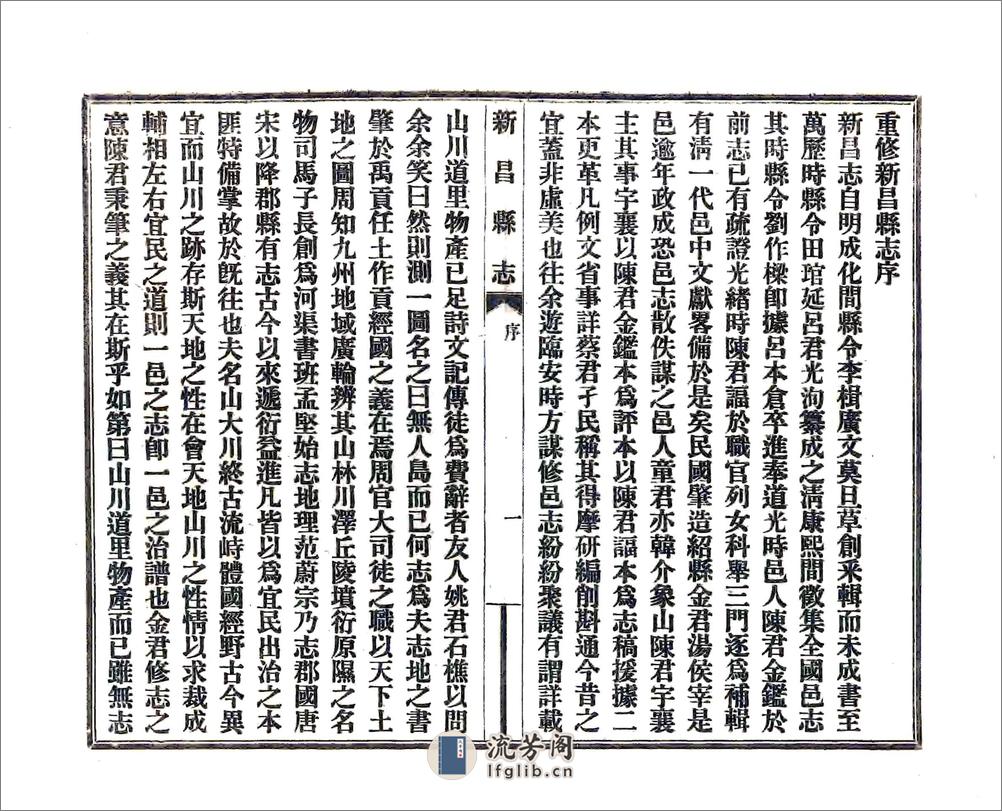 重修新昌縣志序
新昌志自明成化間縣令李楫廣文莫旦草創采輯而未成書至
萬歷時縣令田琯延呂君光洵纂成之清康熙間徵集全國邑志
其時縣令劉作樑卽據呂本倉卒進奉道光時邑人陳君金鑑於
前志已有疏證光緒時陳君謳於職官列女科舉三門逐爲補輯
有淸一代邑中文獻畧備於是矣民國肇造紹縣金君湯侯宰是
邑逾年政成恐邑志散佚謀之邑人童君亦韓介象山陳君宇襄
主其事宇襄以陳君金鑑本爲評本以陳君謳本爲志稿援據二
本更革凡例文省事詳蔡君孑民稱其得摩研編削斟通今昔之
宜蓋非虛美也往余遊臨安時方謀修邑志紛紛聚議有謂詳載
新昌縣志
序
一
山川道里物產已足詩文記傳徒爲費辭者友人姚君石樵以問
余余笑曰然則測一圖名之曰無人島而已何志爲夫志地之書
肇於禹貢任土作貢經國之義在焉周官大司徒之職以天下土
地之圖周知九州地域廣輪辨其山林川澤丘陵墳衍原隰之名
物司馬子長創爲河渠書班孟堅始志地理范蔚宗乃志郡國唐
宋以降郡縣有志古今以來遞衍益進凡皆以爲宜民出治之本
匪特備掌故於旣往也夫名山大川終古流峙體國經野古今異
宜而山川之跡存斯天地之性在會天地山川之性情以求裁成
輔相左右宜民之道則一邑之志卽一邑之治譜也金君修志之
意陳君秉筆之義其在斯乎如第曰山川道里物產而已雖無志
流芳閣
lfglib.cn